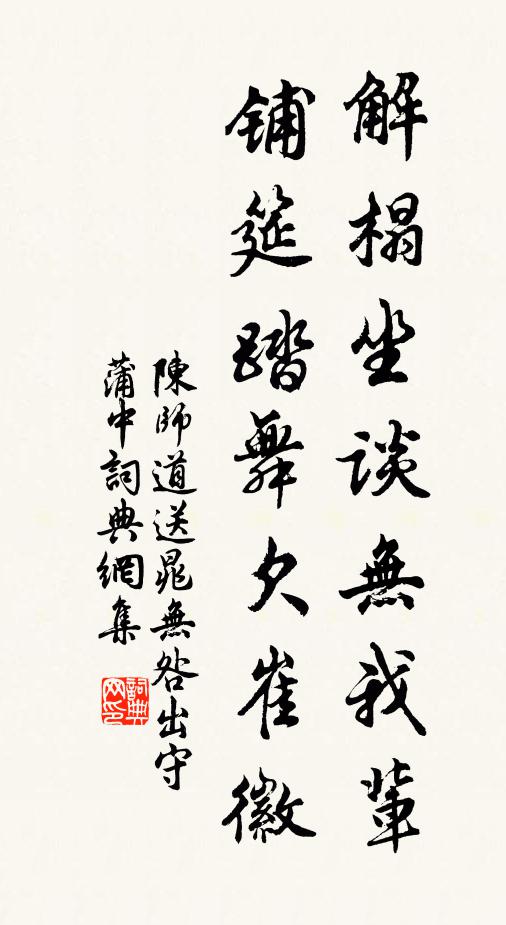 解榻坐談無我輩
鋪筵踏舞欠崔徽
陳師道送晁無咎出守
蒲中詞典網集
詞典網印